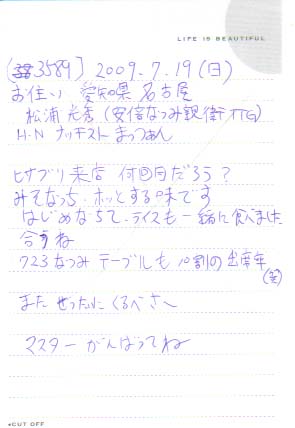 LIFE IS BEAUTIFUL
3589] 2009.7.19(日)
お住い 愛知県 名古屋
松浦光秀(安倍なつみ親衛TTG)
H・N ナッキスト まつつぁん
ヒサブリ来店 何回目だろう?
みそなっち、ホッとする味です
はじめなちて、ライスも一緒に食べました
合うね
723なつみ テーブルも 割の出席率
(笑)
また ぜったいにくるべさ〜
マスター がんばってね
CUT OFF